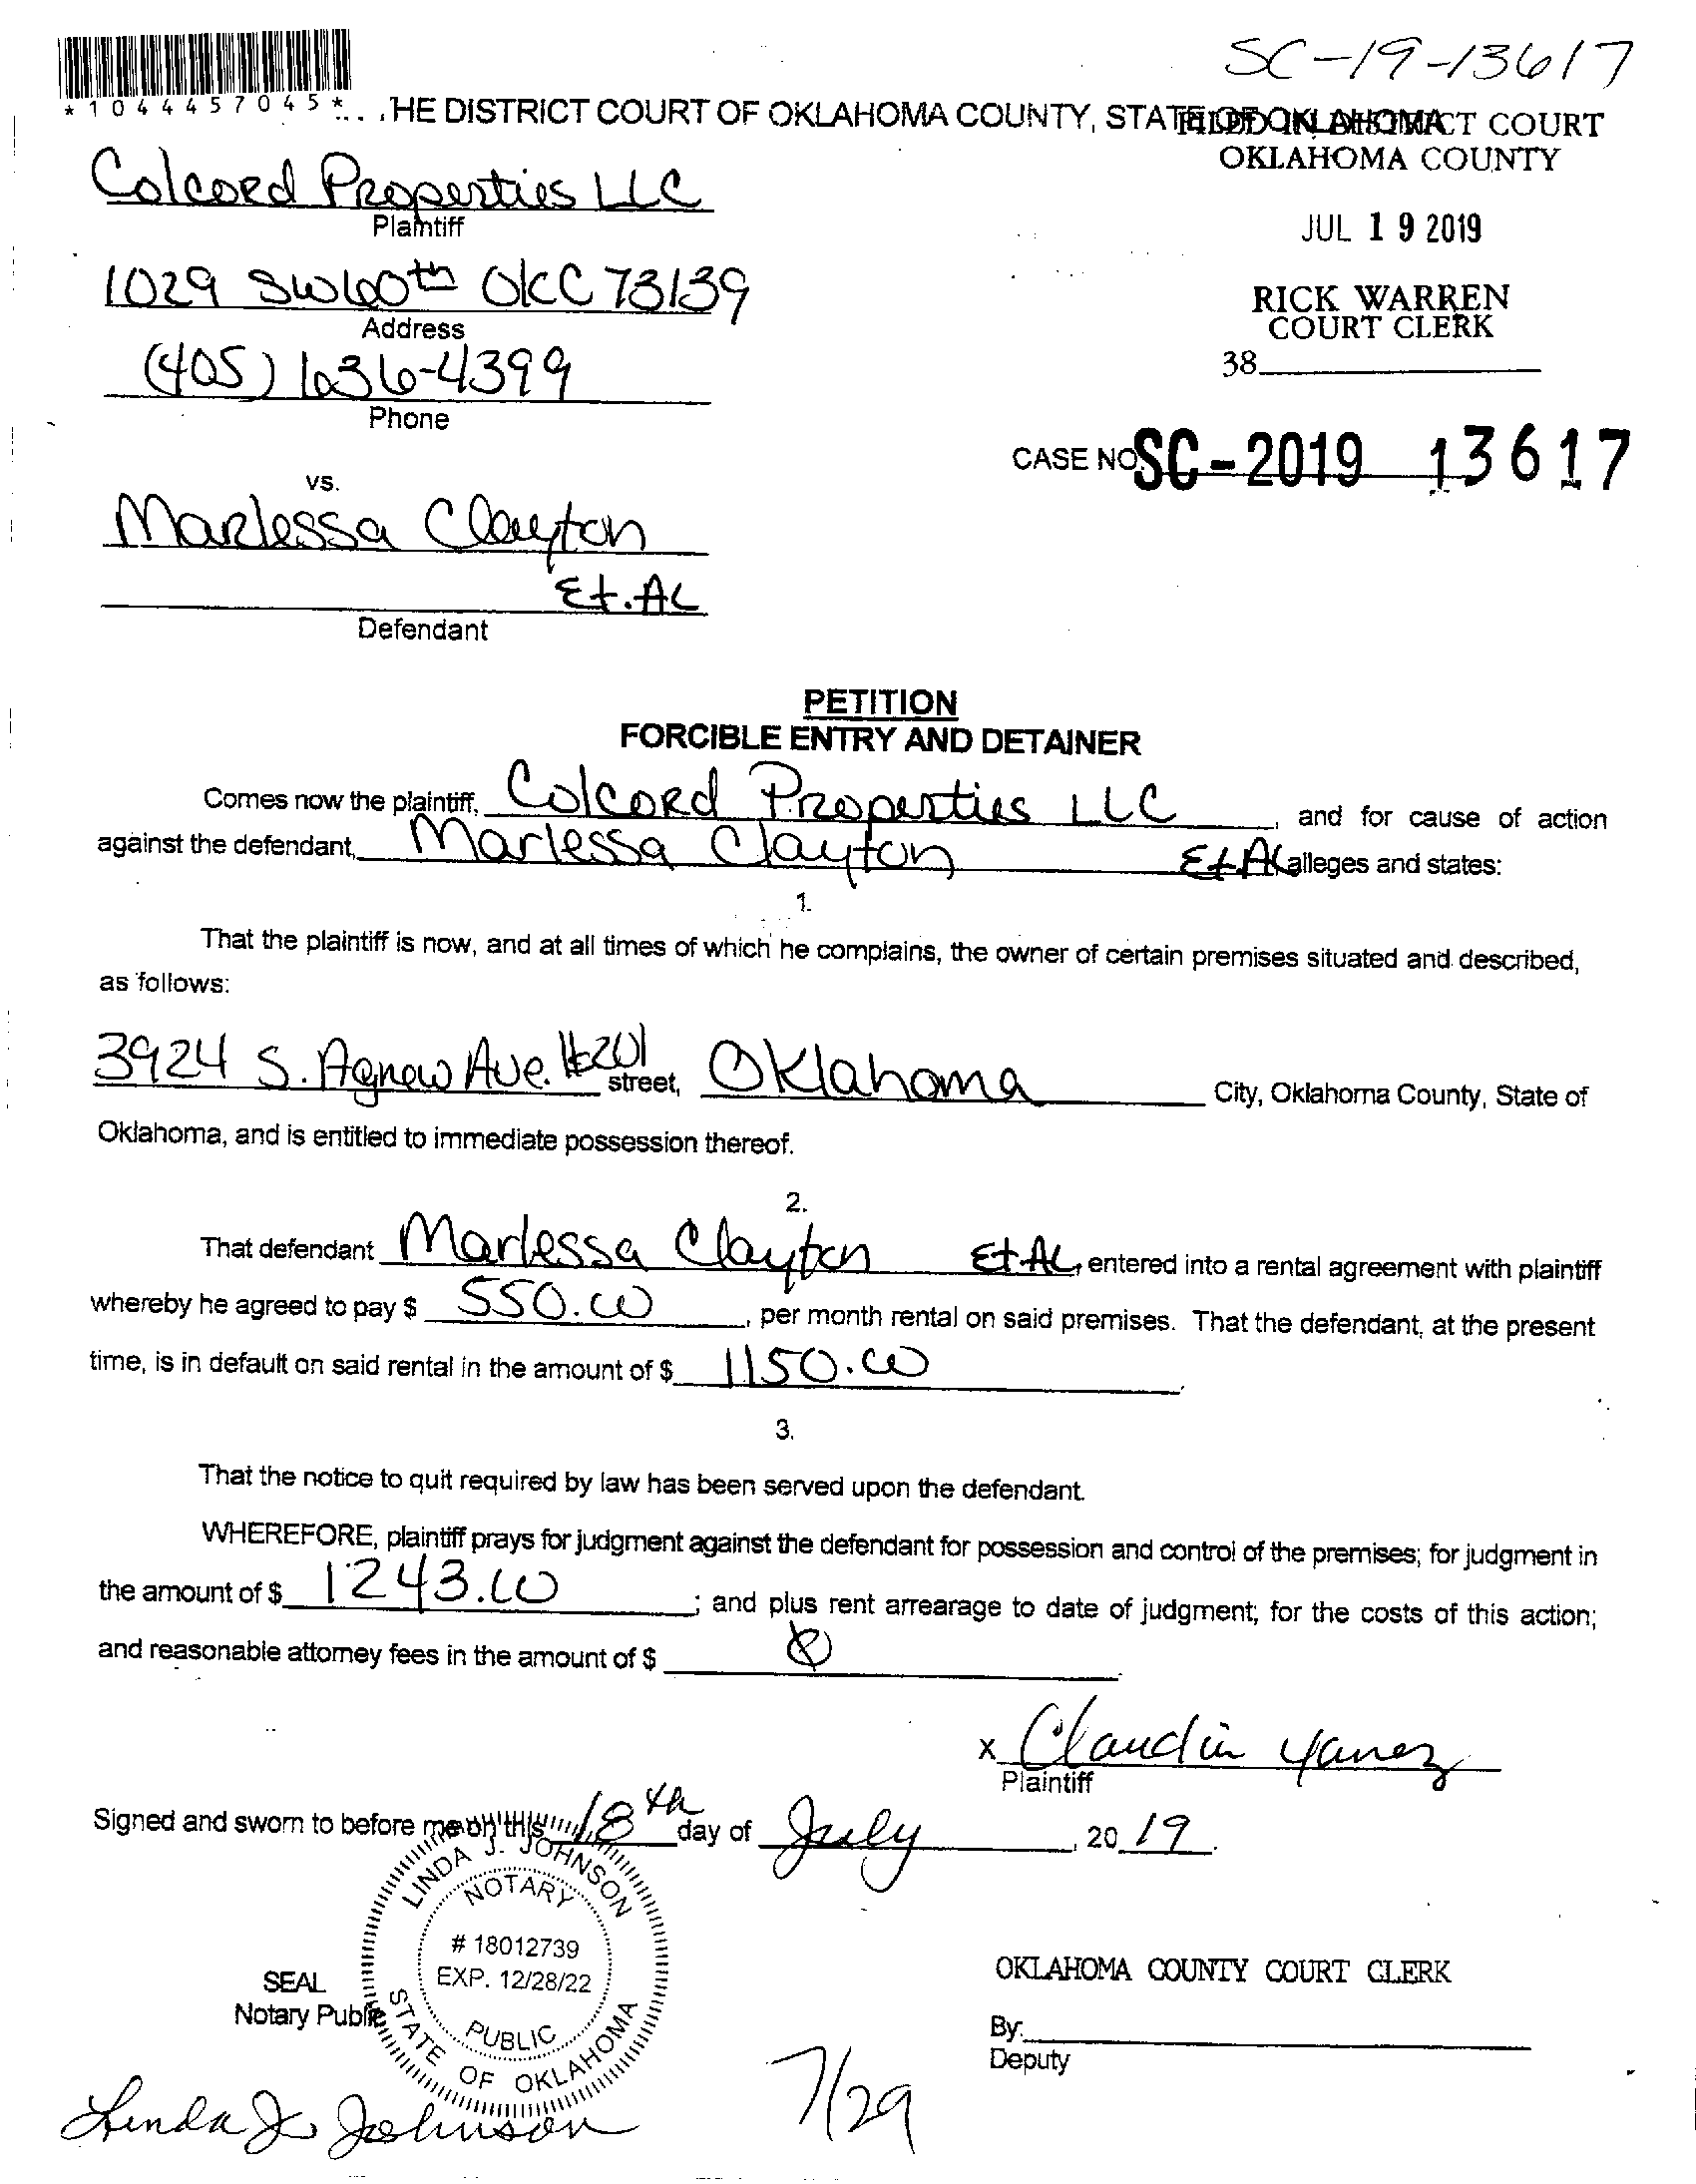 SC-19-13617
*1044457045*
HE DISTRICT COURT OF OKLAHOMA COUNTY, STATE OF OKLAHOMA
FILED IN DISTRICT COURT
OKLAHOMA COUNTY
Colcord Properties LLC
Plaintiff
JUL 19 2019
1029 SW 60th OKC 73139
Address
RICK WARREN
COURT CLERK
(405) 636-4399
Phone
38
CASE NO. SC-2019 13617
vs.
Marlessa Clayton
Et.AL
Defendant
PETITION
FORCIBLE ENTRY AND DETAINER
Comes now the plaintiff, Colcord Properties LLC, and for cause of action
against the defendant, Marlessa Clayton Et.AL alleges and states:
1.
That the plaintiff is now, and at all times of which he complains, the owner of certain premises situated and described,
as follows:
3924 S. Agnew Ave. #201 street, Oklahoma City, Oklahoma County, State of
Oklahoma, and is entitled to immediate possession thereof.
2.
That defendant Marlessa Clayton Et.AL, entered into a rental agreement with plaintiff
whereby he agreed to pay $ 550.00, per month rental on said premises. That the defendant, at the present
time, is in default on said rental in the amount of $ 1150.00
3.
That the notice to quit required by law has been served upon the defendant.
WHEREFORE, plaintiff prays for judgment against the defendant for possession and control of the premises; for judgment in
the amount of $ 1243.00; and plus rent arrearage to date of judgment; for the costs of this action;
and reasonable attorney fees in the amount of $ 0
x Claudia Yanez
Plaintiff
Signed and sworn to before me on this 18th day of July, 2019.
LINDA J. JOHNSON
NOTARY
# 18012739
EXP. 12/28/22
PUBLIC
STATE OF OKLAHOMA
SEAL
Notary Public
OKLAHOMA COUNTY COURT CLERK
By:
Deputy
Linda J. Johnson
7/29